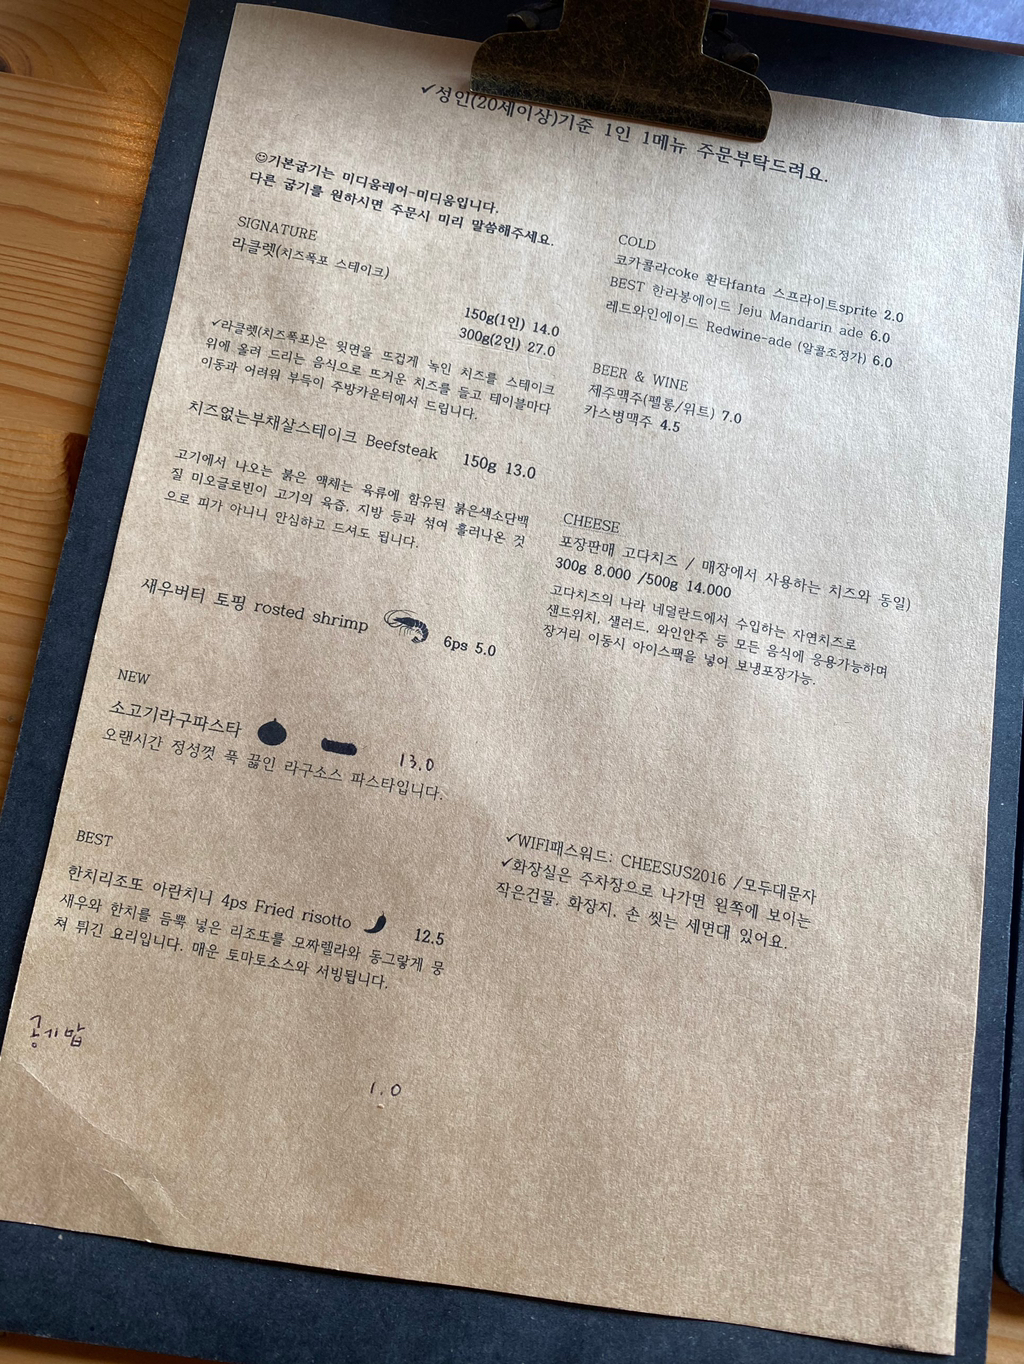 ✓성인(20세이상)기준 1인 1메뉴 주문부탁드려요.
☺기본굽기는 미디움레어-미디움입니다.
다른 굽기를 원하시면 주문시 미리 말씀해주세요.
SIGNATURE
라클렛(치즈폭포 스테이크)
150g(1인) 14.0
300g(2인) 27.0
✓라클렛(치즈폭포)은 윗면을 뜨겁게 녹인 치즈를 스테이크
위에 올려 드리는 음식으로 뜨거운 치즈를 들고 테이블마다
이동과 어려워 부득이 주방카운터에서 드립니다.
치즈없는부채살스테이크 Beefsteak 150g 13.0
고기에서 나오는 붉은 액체는 육류에 함유된 붉은색소단백
질 미오글로빈이 고기의 육즙, 지방 등과 섞여 흘러나온 것
으로 피가 아니니 안심하고 드셔도 됩니다.
새우버터 토핑 rosted shrimp 6ps 5.0
NEW
소고기라구파스타 13.0
오랜시간 정성껏 푹 끓인 라구소스 파스타입니다.
BEST
한치리조또 아란치니 4ps Fried risotto 12.5
새우와 한치를 듬뿍 넣은 리조또를 모짜렐라와 동그랗게 뭉
쳐 튀긴 요리입니다. 매운 토마토소스와 서빙됩니다.
공기밥
1.0
COLD
코카콜라coke 환타fanta 스프라이트sprite 2.0
BEST 한라봉에이드 Jeju Mandarin ade 6.0
레드와인에이드 Redwine-ade (알콜조정가) 6.0
BEER & WINE
제주맥주(펠롱/위트) 7.0
카스병맥주 4.5
CHEESE
포장판매 고다치즈 / 매장에서 사용하는 치즈와 동일)
300g 8.000 /500g 14.000
고다치즈의 나라 네덜란드에서 수입하는 자연치즈로
샌드위치, 샐러드, 와인안주 등 모든 음식에 응용가능하며
장거리 이동시 아이스팩을 넣어 보냉포장가능.
✓WIFI패스워드: CHEESUS2016 /모두대문자
✓화장실은 주차장으로 나가면 왼쪽에 보이는
작은건물. 화장지, 손 씻는 세면대 있어요.